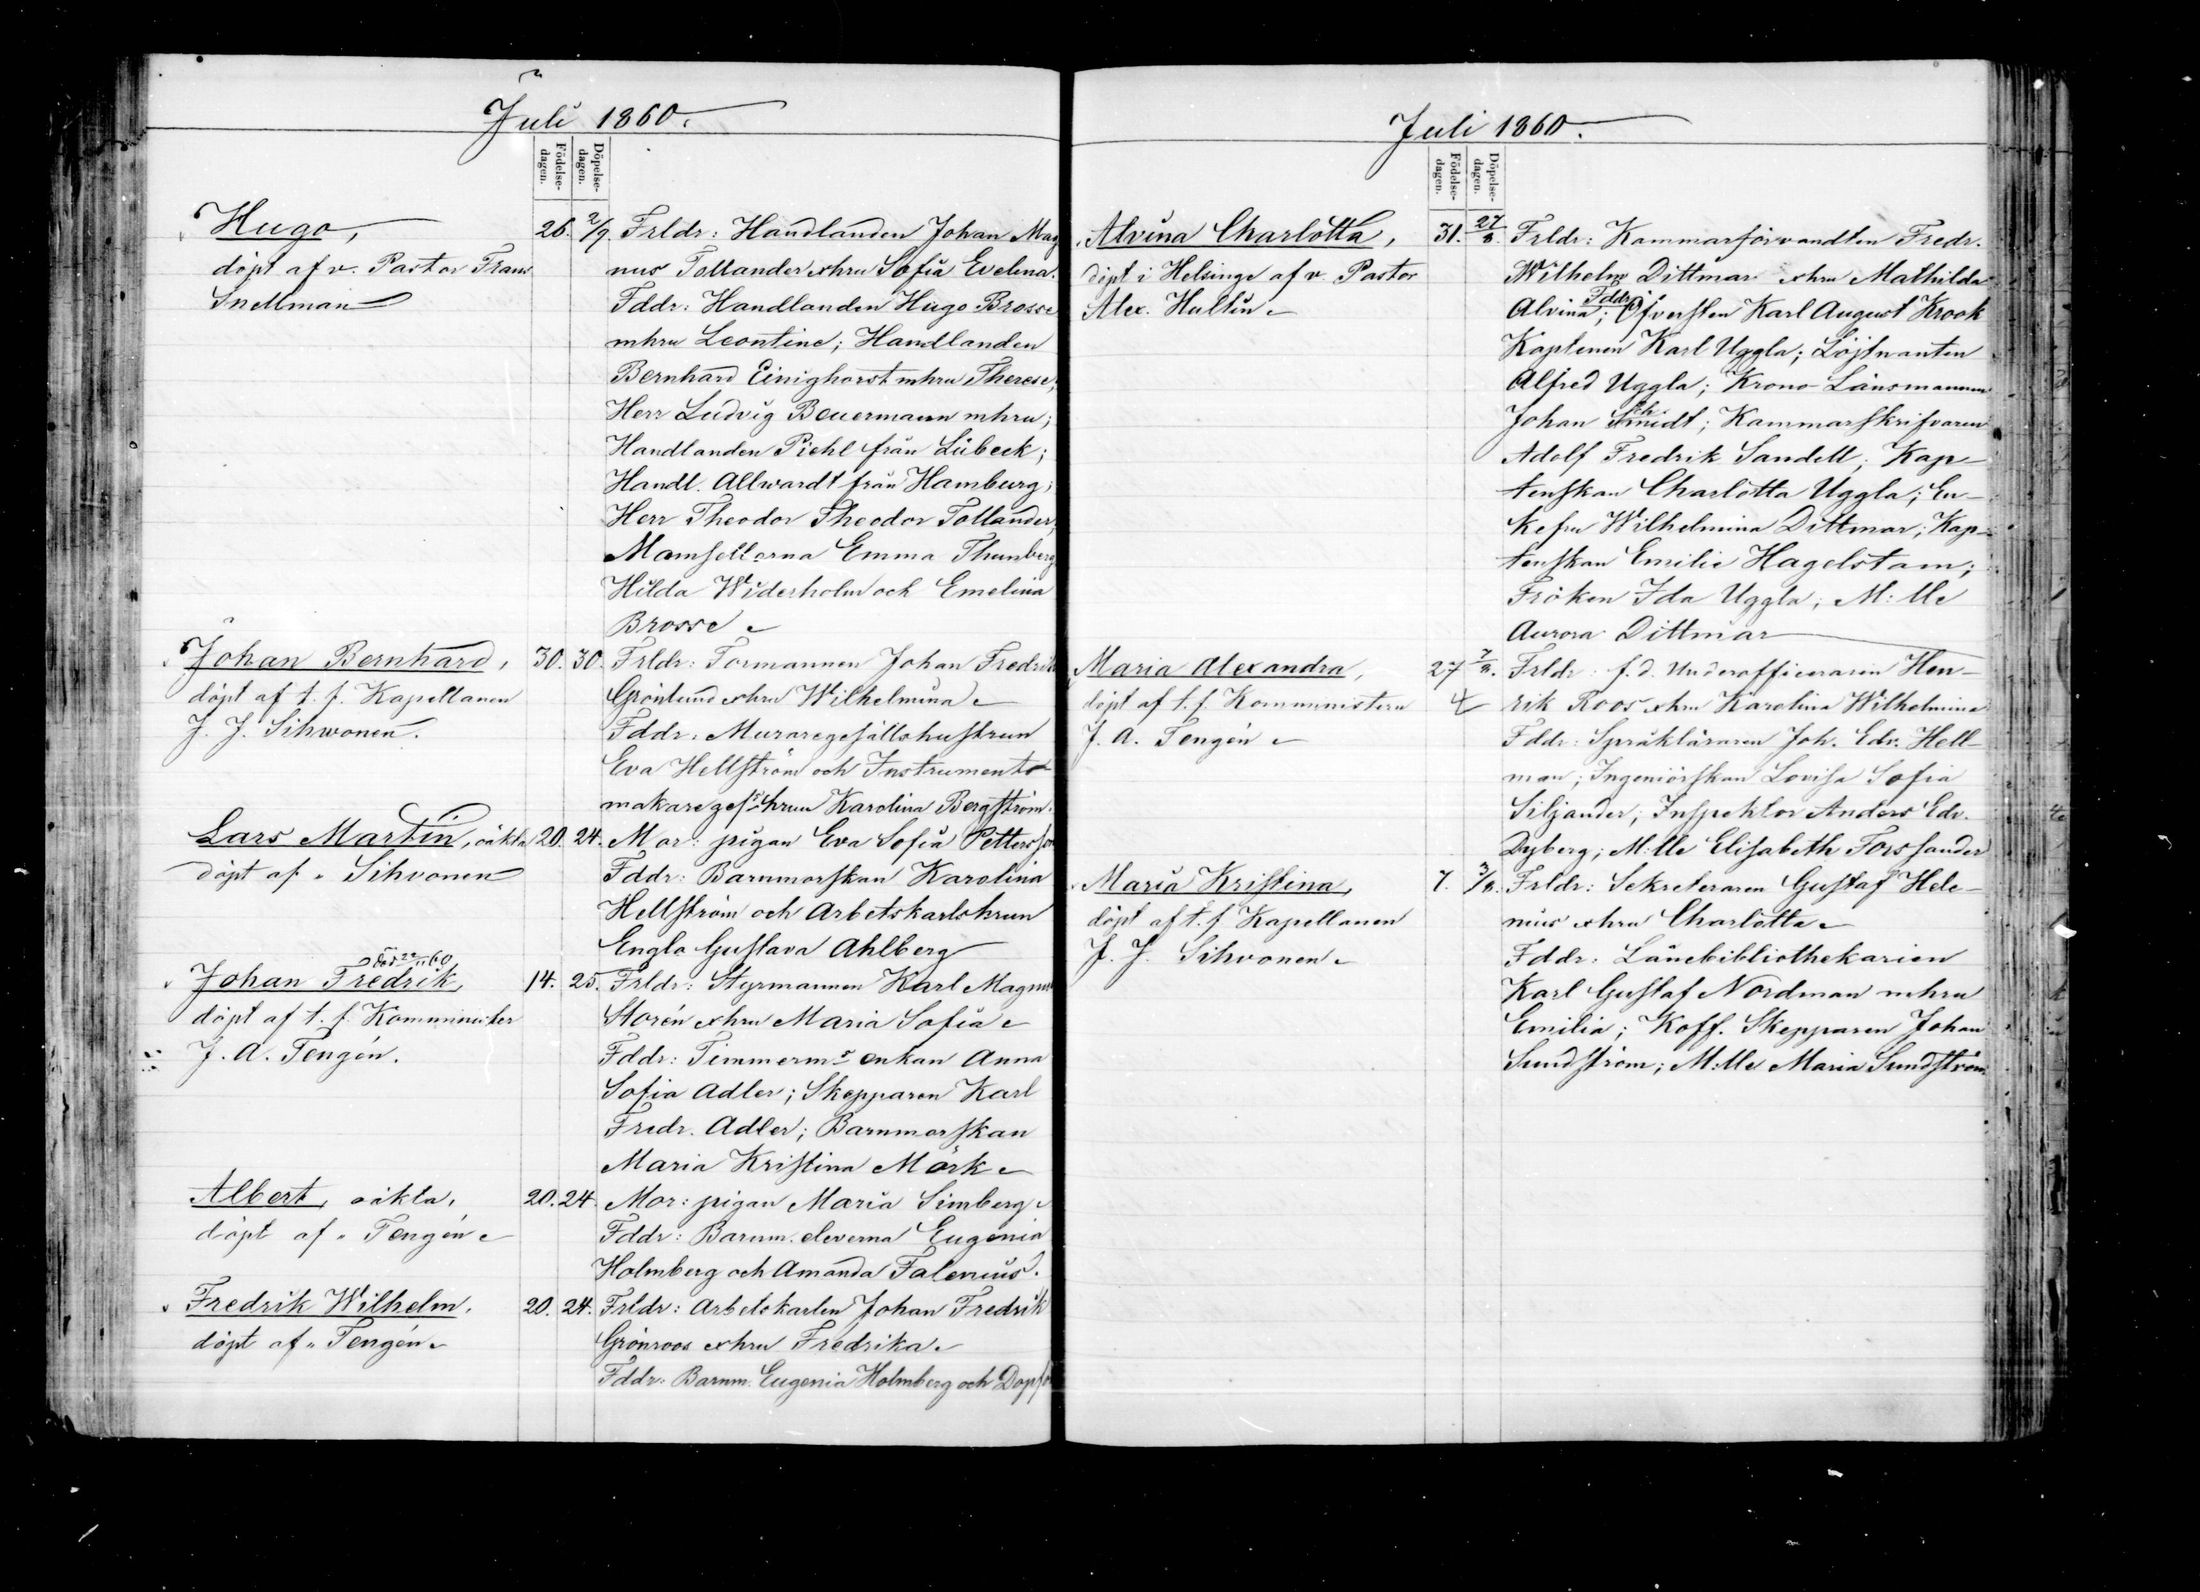 Juli 1860.
Födelse-
dagen.
Döpelse-
dagen.
Hugo,
döpt af v. Pastor Frans
Snellman
26. 2/9.
Frldr: Handlanden Johan Mag
nus Tollander o hru Sofia Evelina.
Fddr: Handlanden Hugo Brosse
mhru Leontine; Handlanden
Bernhard Einighorst mhru Therese;
Herr Ludvig Beuermann mhru;
Handlanden Piehl från Lübeck;
Handl. Allwardt från Hamburg;
Herr Theodor Theodor Tollander,
Mamsellerna Emma Thunberg
Hilda Widerholm och Emelina
Brosse
Johan Bernhard,
döpt af t. f. Kapellanen
J. J. Sihwonen.
30. 30.
Frldr: Formannen Johan Fredrik
Grönlund o hru Wilhelmina
Fddr: Muraregesällshustrun
Eva Hellström och Instrument
makareges:s hrun Karolina Bergström.
Lars Martin, oäkta
döpt af " Sihvonen
20. 24.
Mor: pigan Eva Sofia Pettersson
Fddr: Barnmorskan Karolina
Hellström och Arbetskarlshrun
Engla Gustava Ahlberg
död 22/11 60
Johan Fredrik,
döpt af t. f. Kommunister
J. A. Tengén.
14. 25.
Frldr: Styrmannen Karl Magnus
Storén o hru Maria Sofia
Fddr: Timmerms enkan Anna
Sofia Adler; Skepparen Karl
Fredr. Adler; Barnmorskan
Maria Kristina Mörk
Albert, oäkta,
döpt af " Tengén
20. 24.
Mor: pigan Maria Simberg
Fddr: Barnm. eleverna Eugenia
Holmberg och Amanda Falenius.
Fredrik Wilhelm,
döpt af " Tengén
20. 24.
Frldr: Arbetskarlen Johan Fredrik
Grönroos o hru Fredrika
Fddr: Barnm. Eugenia Holmberg och
Juli 1860.
Födelse-
dagen.
Döpelse-
dagen.
Alvina Charlotta,
döpt i Helsinge af v. Pastor
Alex. Hultin
31. 27/8.
Frldr: Kammarförvandten Fredr.
Wilhelm Dittmar o hru Mathilda
Fddr:
Alvina; Öfversten Karl August Krook
Kaptenen Karl Uggla; Löjtnanten
Alfred Uggla; Krono-Länsmannen
Johan Schmidt; Kammarskrifvaren
Adolf Fredrik Sandell; Kap-
tenskan Charlotta Uggla; En-
kefru Wilhelmina Dittmar; Kap-
tenskan Emilie Hagelstam;
Fröken Ida Uggla; M:lle
Aurora Dittmar
Maria Alexandra,
döpt af t. f. Kommunistern
J. A. Tengén
27 7/8.
Frldr: f. d. Underofficeraren Hen-
rik Roos o hru Karolina Wilhelmina
Fddr: Språkläraren Joh. Edv. Hell-
man; Ingeniörskan Lovisa Sofia
Siljander; Inspektor Anders Edv.
Dyberg; M:lle Elisabeth Forssander
Maria Kristina,
döpt af t. f. Kapellanen
J. J. Sihvonen
7. 3/8.
Frldr: Sekreteraren Gustaf Hele-
nius o hru Charlotta
Fddr: Lånebibliothekarien
Karl Gustaf Nordman mhru
Emilia; Koff. Skepparen Johan
Sundström; M:lle Maria Sundström